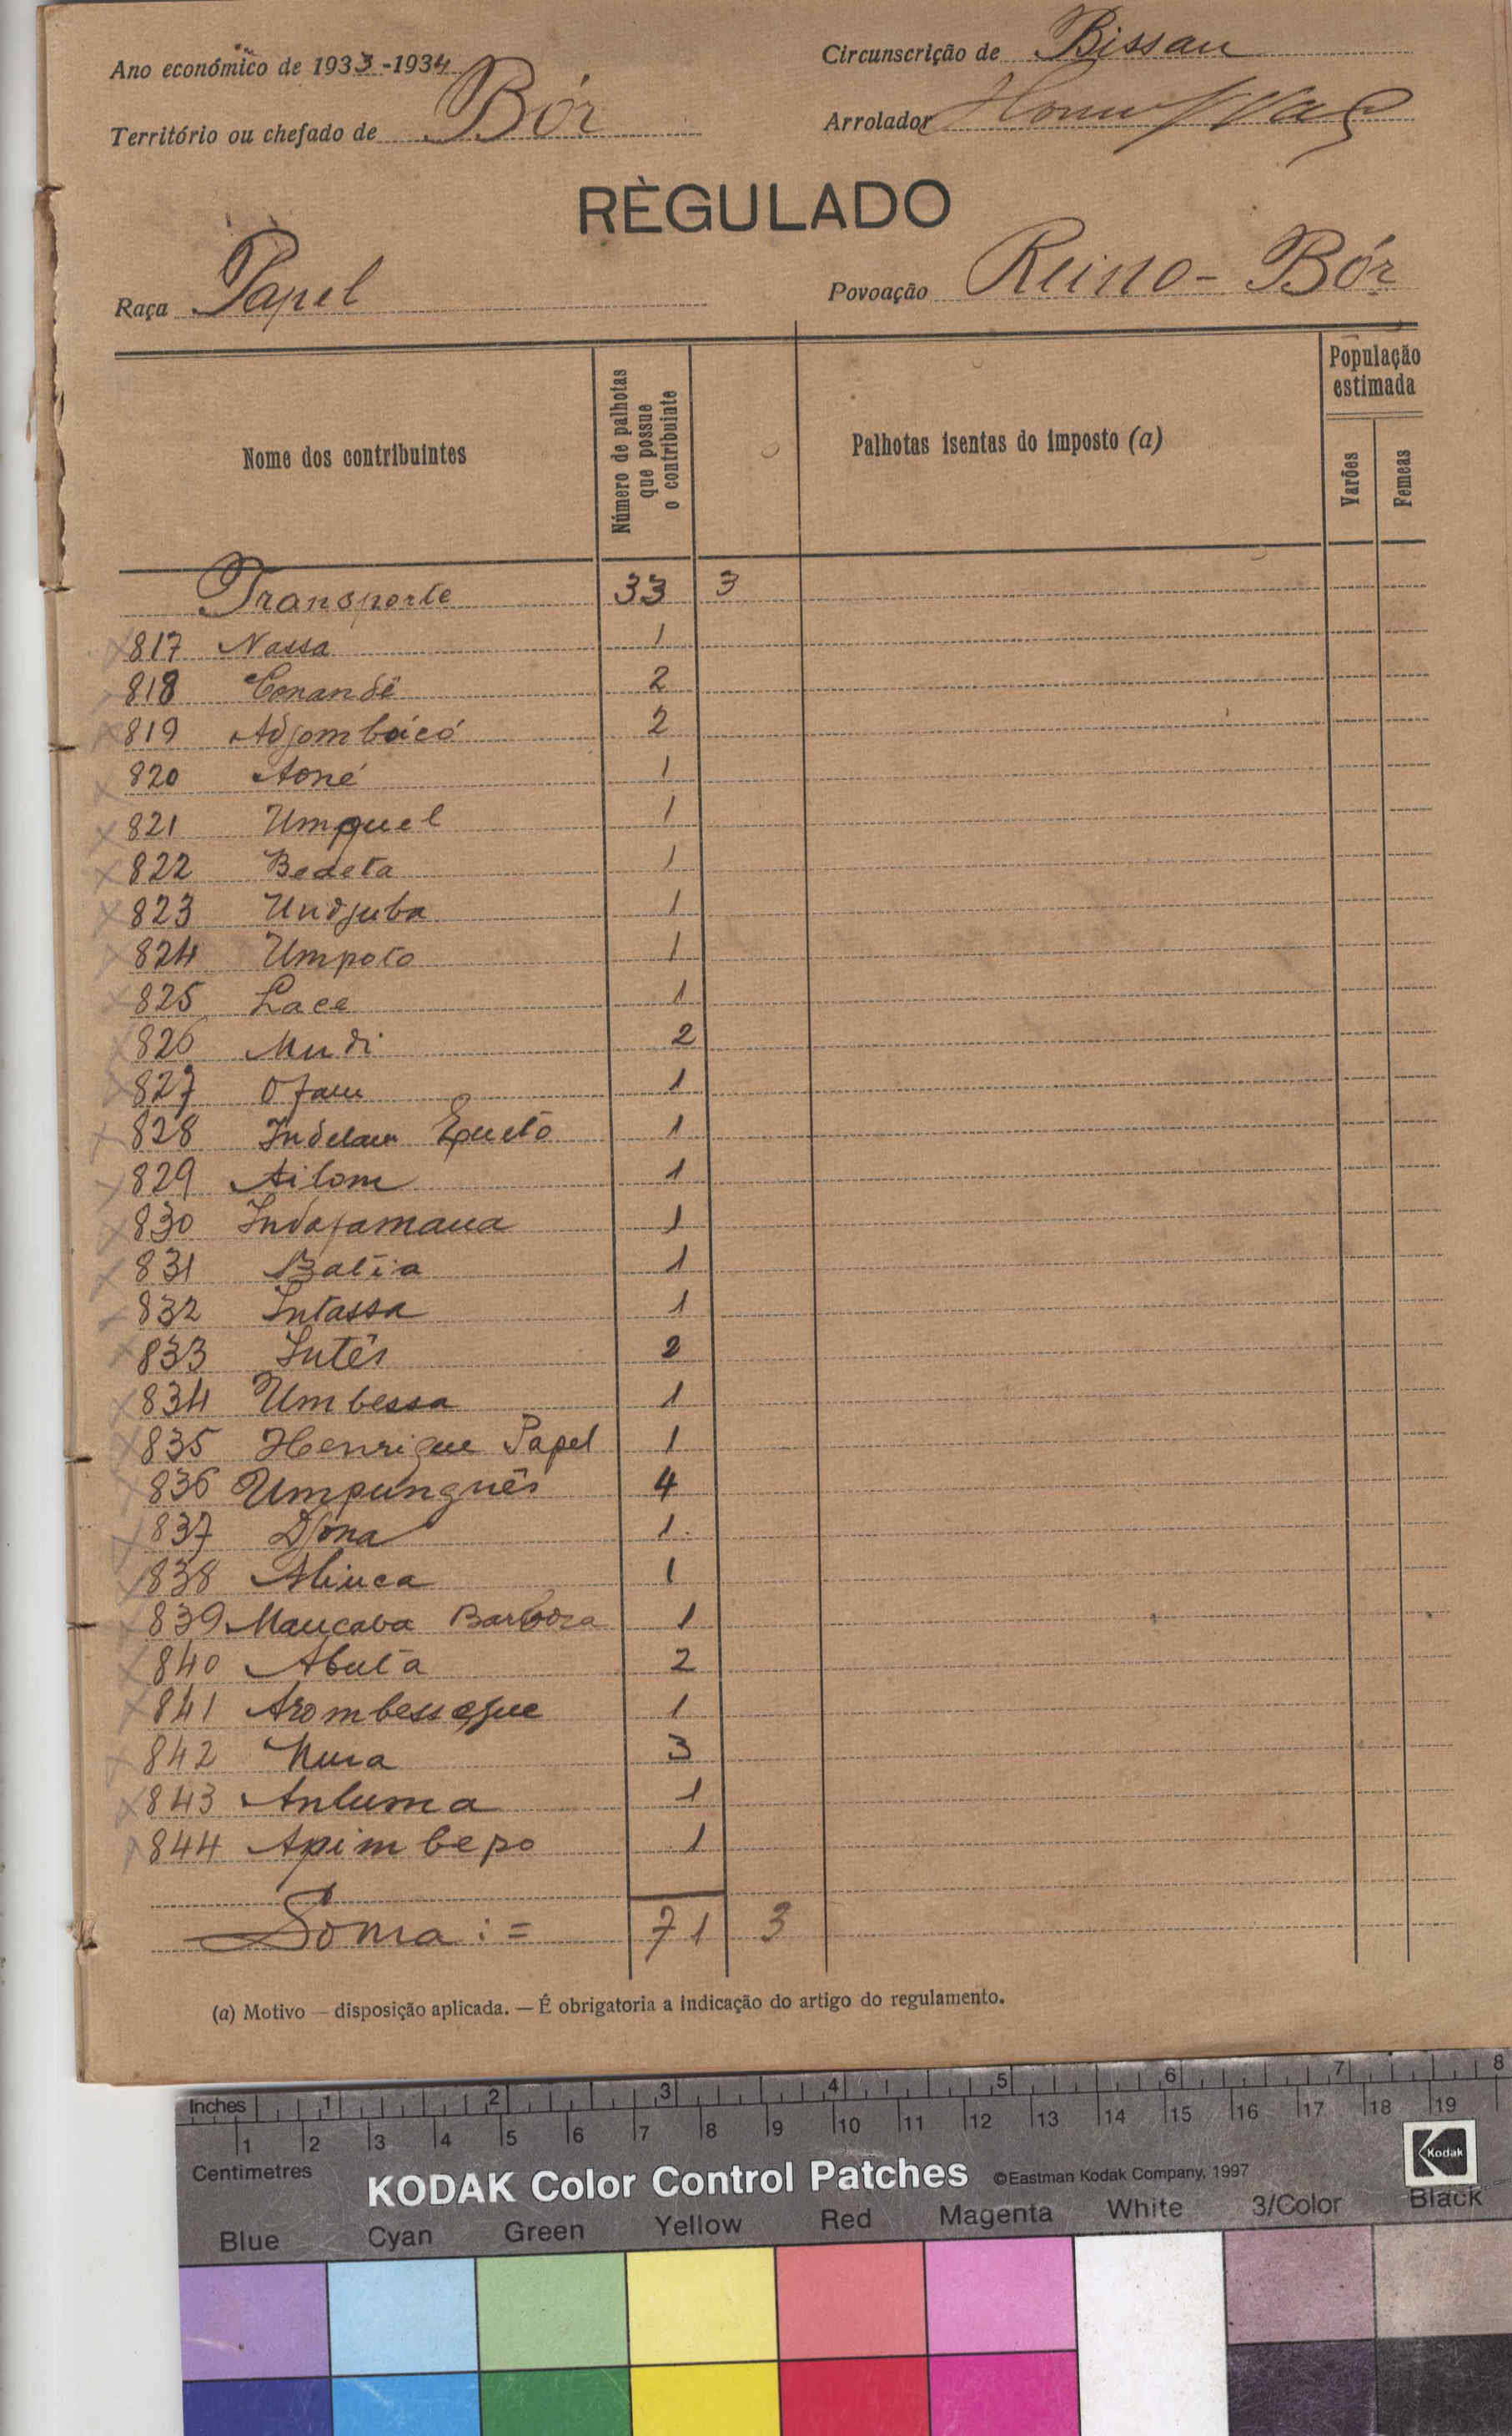 Ano económico de 1933-1934
Circunscrição de Bissau
Território ou chefado de Bór
Arrolador
RÈGULADO
Raça Papel
Povoação Reino-Bór
Nome dos contribuintes
Número de palhotas que possue o contribuinte
Palhotas isentas do imposto (a)
População estimada
Varões
Femeas
Transporte 33 3
817 Nassa 1
818 2
819 Adjombóicó 2
820 Aoné 1
821 Umquel 1
822 Bedeta 1
823 Undjuba 1
824 Umpoto 1
825 Lace 1
826 Mudi 2
827 Ofam 1
828 1
829 Ailom 1
830 Indafamaua 1
831 Batia 1
832 Intassa 1
833 Intês 2
834 Umbessa 1
835 Henrique Papel 1
836 Umpunguês 4
837 Djóna 1
838 Aliuca 1
839 Maucaba Barboza 1
840 Abutá 2
841 1
842 Nuia 3
843 Antuma 1
844 Apimbepo 1
Soma: = 71 3
(a) Motivo — disposição aplicada. — É obrigatoria a indicação do artigo do regulamento.
Inches 1 2 3 4 5 6 7 8
1 2 3 4 5 6 7 8 9 10 11 12 13 14 15 16 17 18 19
Centimetres
KODAK Color Control Patches ©Eastman Kodak Company, 1997 Kodak
Blue Cyan Green Yellow Red Magenta White 3/Color Black